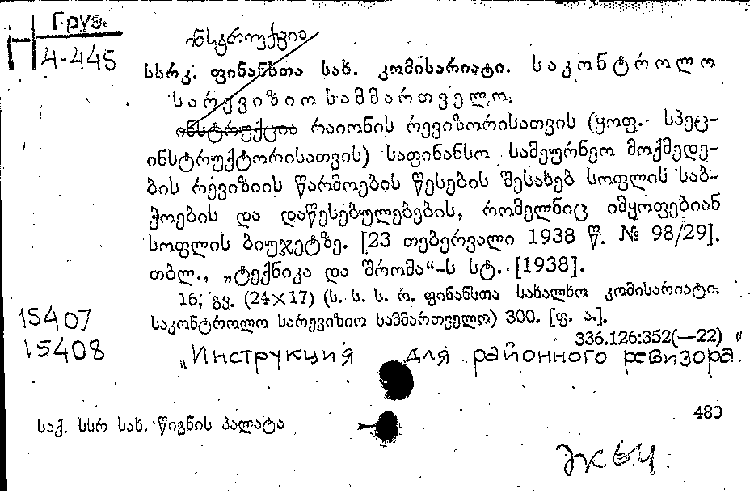 Груз.
П 4-445
ინსტრუქცია
სსრკ. ფინანსთა სახ. კომისარიატი. საკონტროლო
სარევიზიო სამმართველო.
ინსტრუქცია რაიონის რევიზორისათვის (ყოფ. სპეც-
ინსტრუქტორისათვის) საფინანსო სამეურნეო მოქმედე-
ბის რევიზიის წარმოების წესების შესახებ სოფლის საბ-
ჭოების და დაწესებულებების, რომელნიც იმყოფებიან
სოფლის ბიუჯეტზე. [23 თებერვალი 1938 წ. № 98/29].
თბლ., „ტექნიკა და შრომა“-ს სტ. [1938].
16; გვ. (24×17) (ს. ს. ს. რ. ფინანსთა სახალხო კომისარიატი.
საკონტროლო სარევიზიო სამმართველო) 300. [ფ. ა.].
15407
15408
336.126:352(—22)
„Инструкция для районного ревизора“
483
საქ. სსრ სახ. წიგნის პალატა